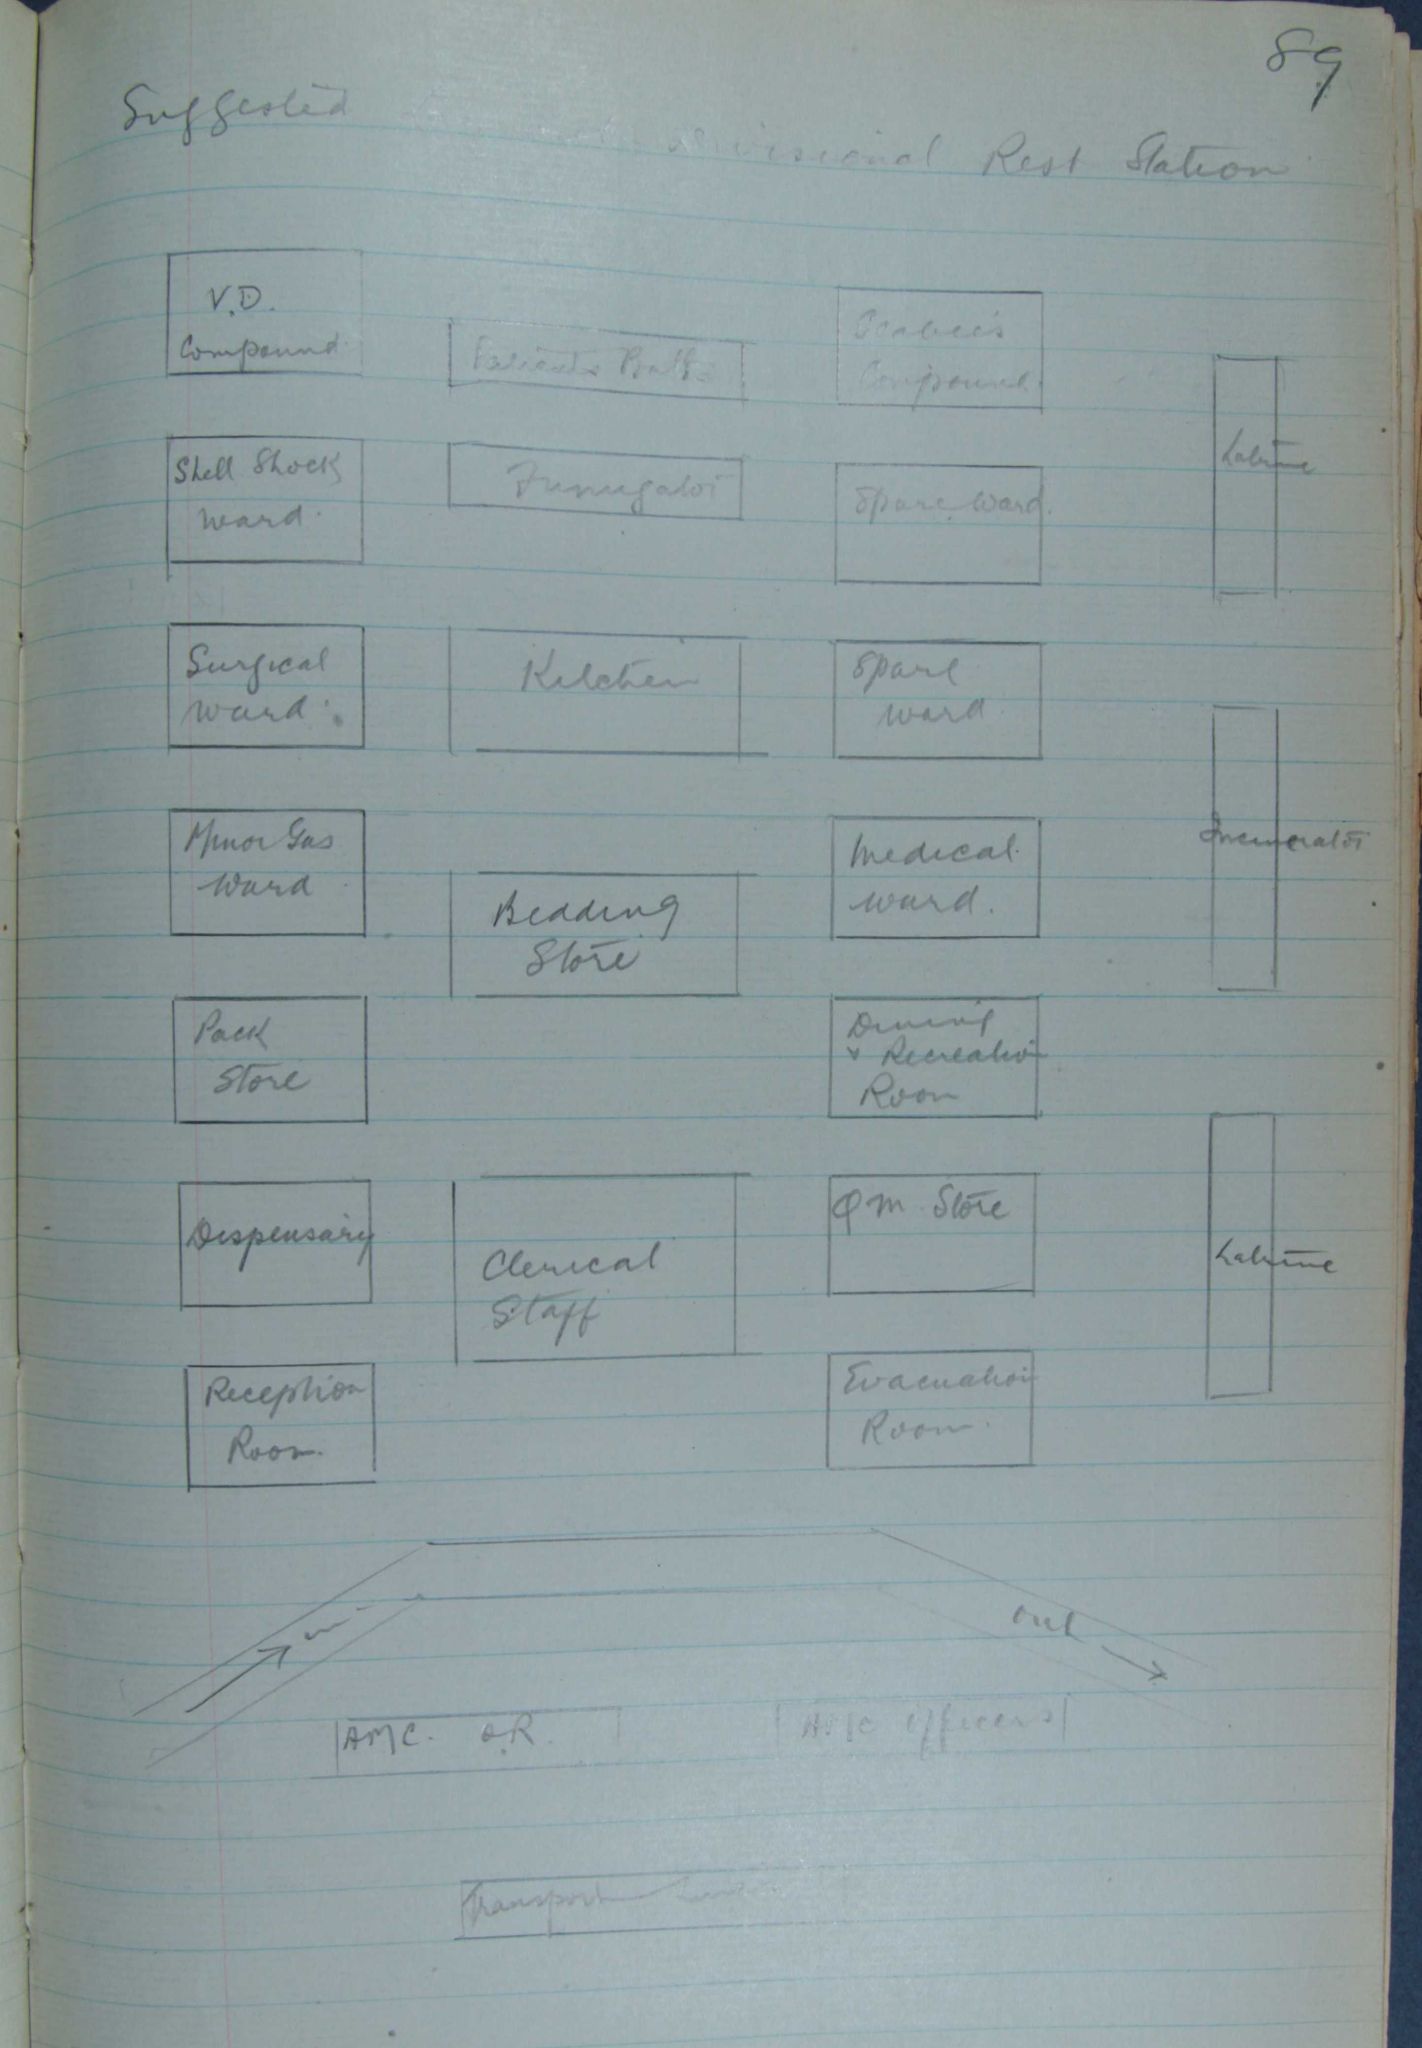 89
Suggested
Divisional Rest Station
V.D.
Compound
Patients Baths
Scabies
Compound.
Latrine
Shell Shock
Ward.
Fumigator
Spare Ward.
Surgical
Ward.
Kitchen
Spare
Ward.
Incinerator
Minor Gas
Ward
Bedding
Store
Medical
Ward.
Pack
Store
Dining
& Recreation
Room
Dispensary
Clerical
Staff
QM Store
Latrine
Reception
Room.
Evacuation
Room.
in
out
AMC. O.R.
AMC Officers
Transport